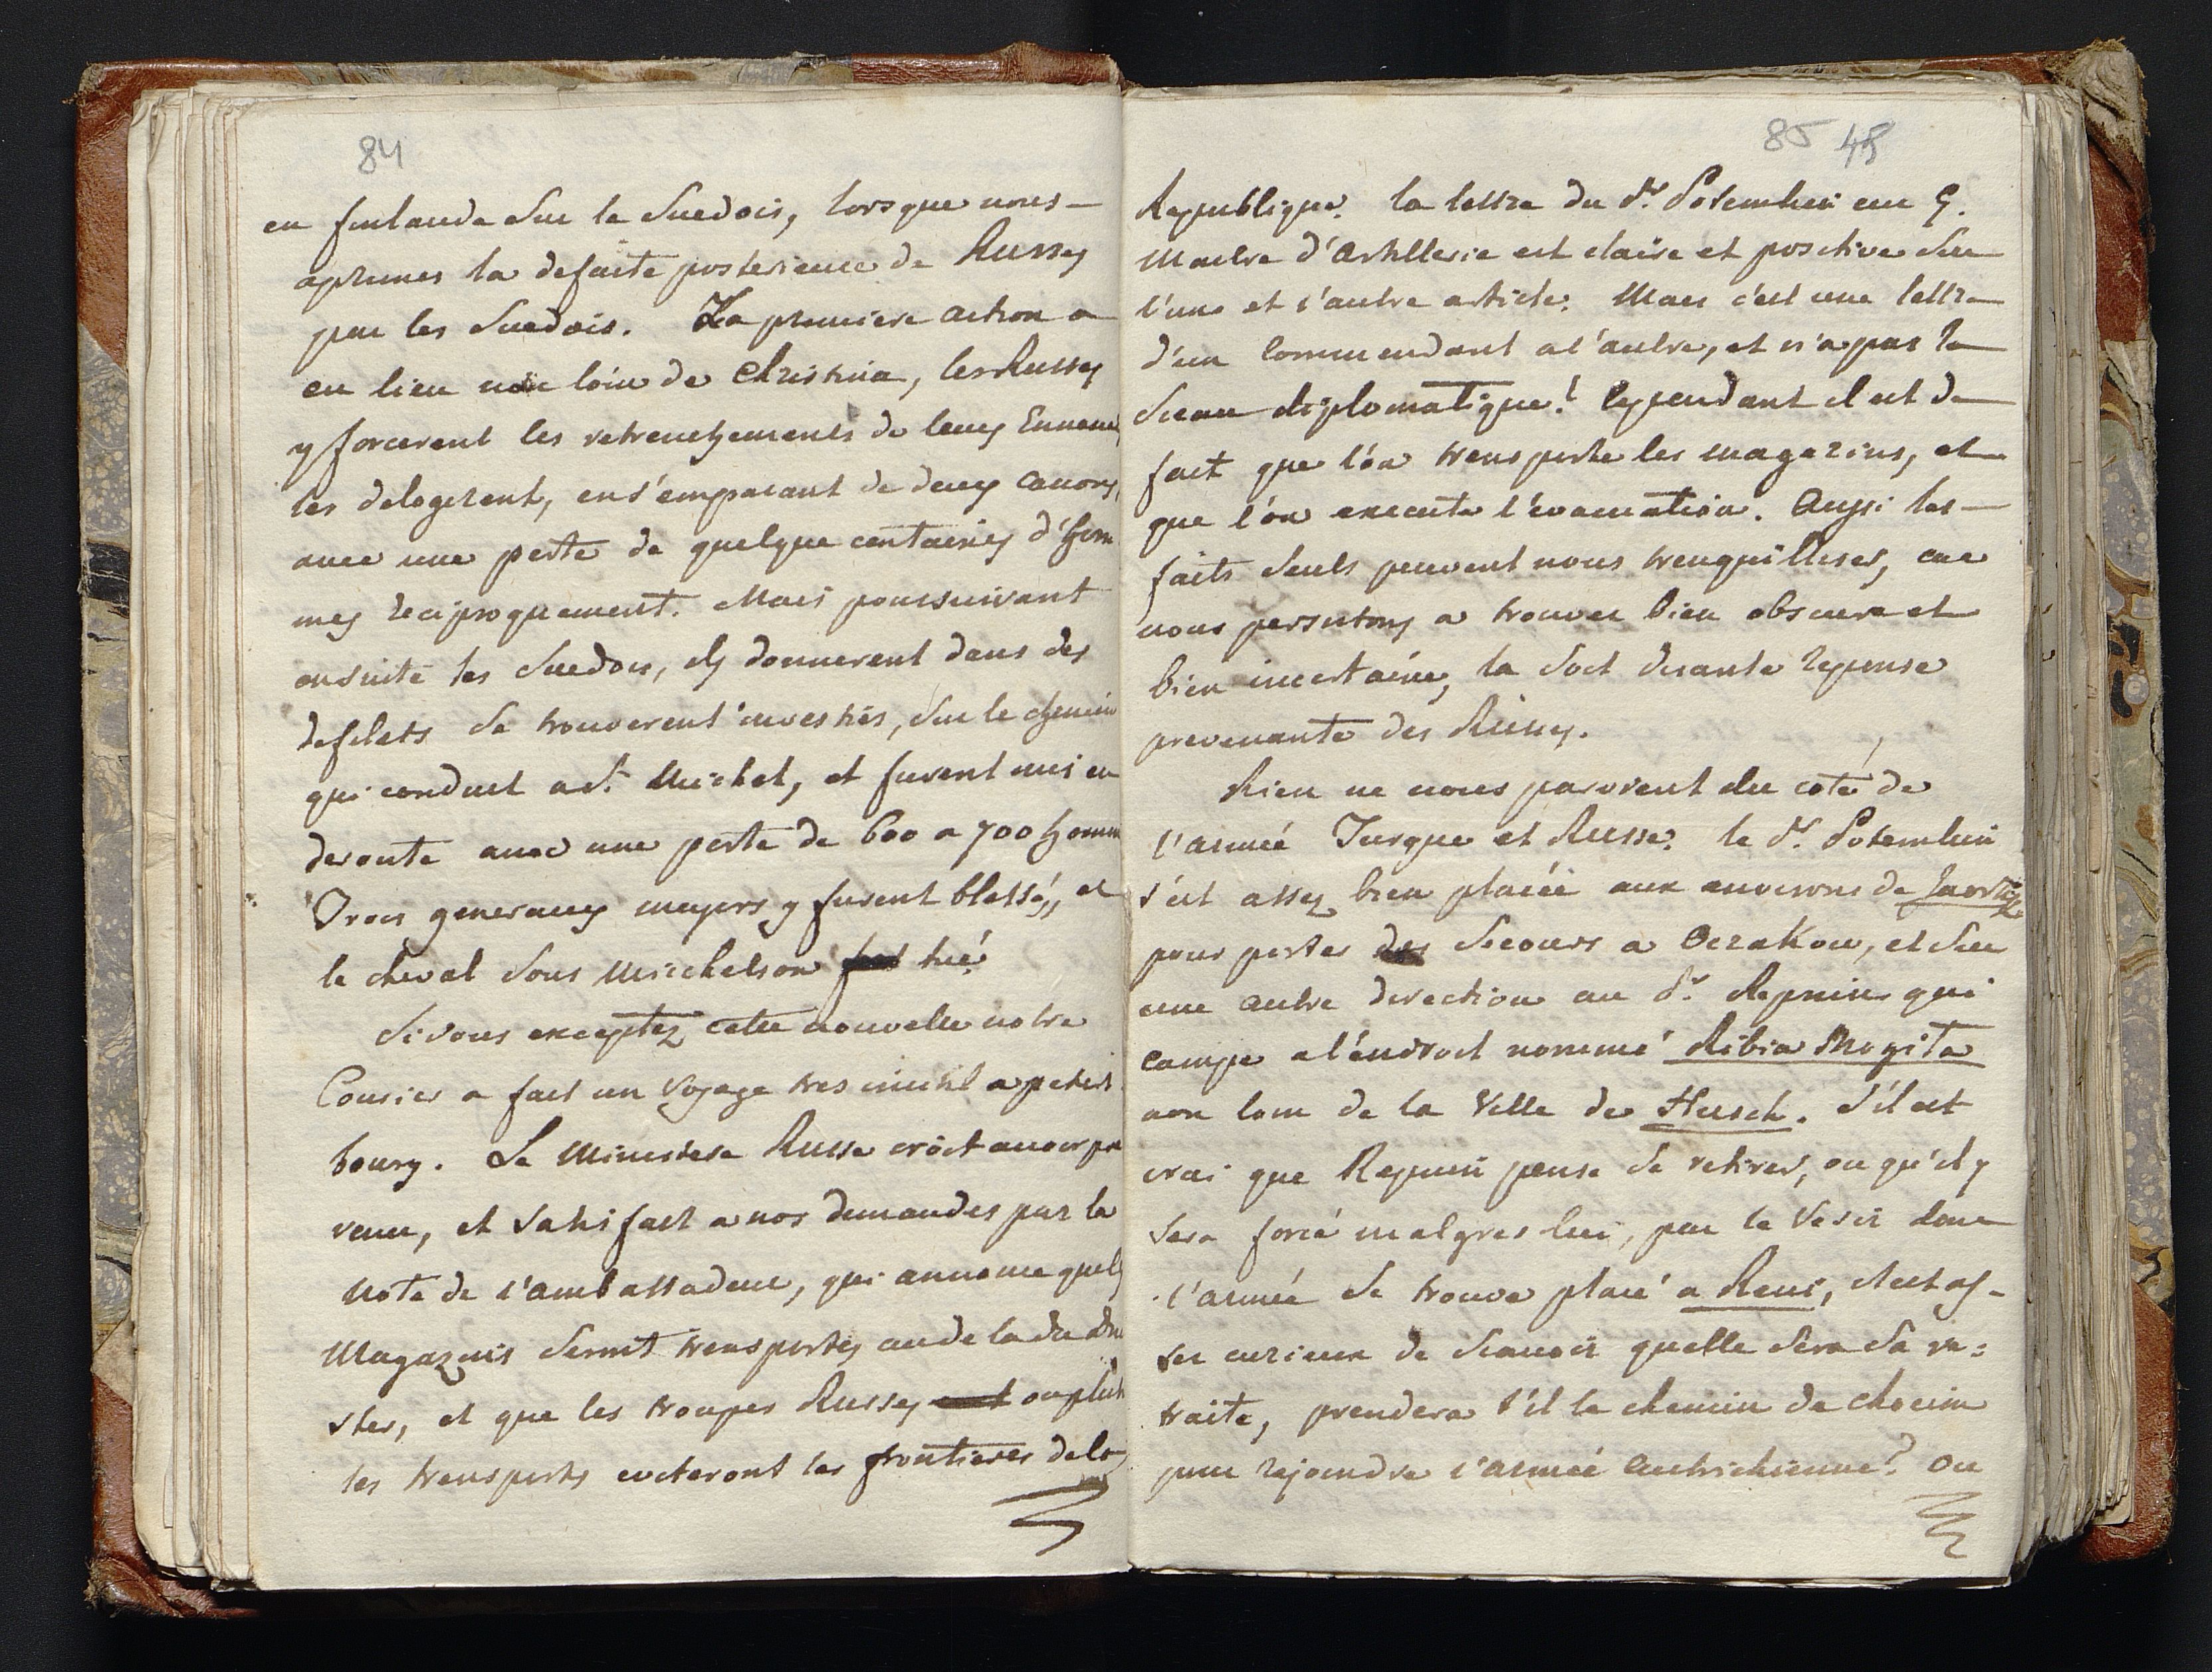 84
en finlande sur le Suedois, lorsque nous –
aprimes la defaite posterieure de Russes
par les Suedois. La premiere action a
eu lieu non loin de Christina, les Russes
y forcerent les retrenchements de leurs Ennemis
les delogerent, en s'emparant de deux canons,
avec une perte de quelque centaines d'hom
mes reciproquement. Mais poursuivant
ensuite les Suedois, ils donnerent dans des
defilets se trouverent investies, sur le chemin
qui conduit a St. Michel, et furent mis en
deroute avec une perte de 600 a 700 homm
Trois generaux majors y furent blessés, et
le cheval sous Michelson fut tué.
Si vous exceptez cette nouvelle notre
Courier a fait un voyage tres inutil a peters
bourg. Le Ministere Russe croit avoir pre
venu, et satisfait a nos demandes par la
Note de l'ambassadeur, qui annonce que les
Magazins seront transportes au de la du Dni
ster, et que les troupes Russes ou plutot
les transports eviteront les frontieres de la
85 48
Republique. la lettre du Pr. Potemkin au G.
Maitre d'Artillerie est claire et positive sur
l'une et l'autre article. Mais c'est une lettre
d'un Commendant a l'autre, et n'a pas le
Sceau diplomatique! Cependant il est de
fait que l'on transporte les magazins, et
que l'on execute l'evacuation. Aussi les –
faits seuls peuvent nous trenquilliser, car
nous persistons a trouver bien obscure et
bien incertaine, la soit disante reponse
prevenante des Russes.
Rien ne nous parvient du coté de
l'armée Turque et Russe. le Pr. Potemkin
s'est assez bien placée aux environs de
pour porter des secours a Oczakow, et sur
une autre direction au Pr. Repnin qui
campe a l'endroit nommé Ribia Mogita
non loin de la Ville de Husch. S'il est
vrai que Repnin pense se retirer, ou qu'il y
sera forcé malgres lui, par le Vesir dont
l'armée se trouve placé a Reni, il est as-
ser curieux de scavoir quelle sera sa re=
traite, prendera t'il le chemin de Chocim
pour rejoindre l'armée autrichienne? ou